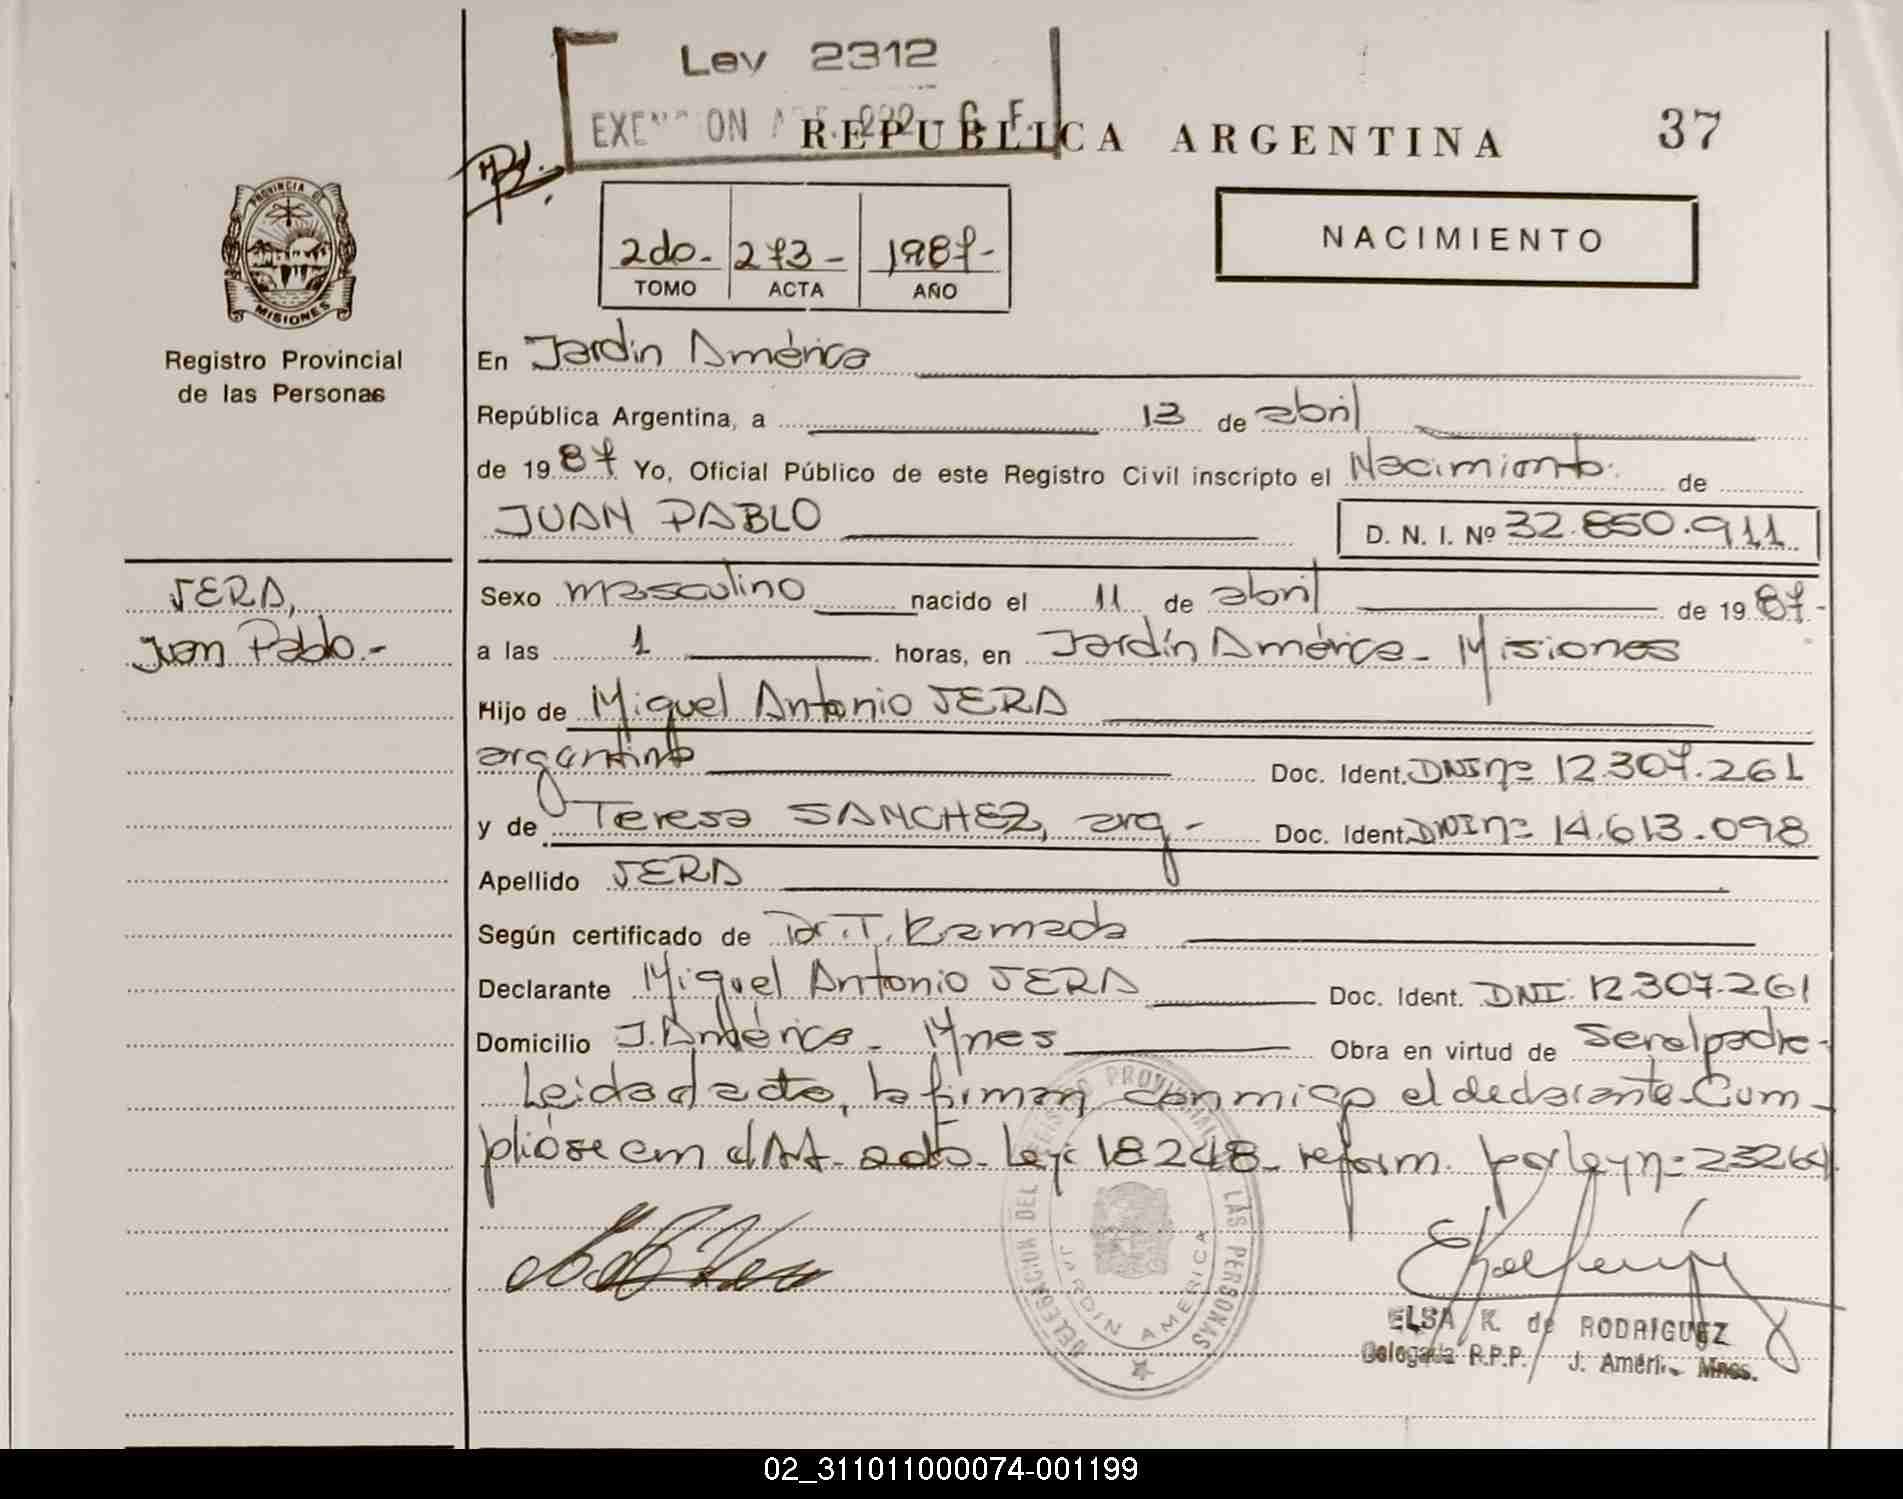 Ley 2312
EXENCION ART. 292 C. F.
REPUBLICA ARGENTINA
37
PROVINCIA DE
MISIONES
Registro Provincial
de las Personas
2do.- 273- 1987-
TOMO ACTA AÑO
NACIMIENTO
En Jardín América
República Argentina, a 13 de abril
de 1987 Yo, Oficial Público de este Registro Civil inscripto el Nacimiento. de
JUAN PABLO D. N. I. Nº 32.850.911
VERA,
Juan Pablo.-
Sexo masculino nacido el 11 de abril de 1987.-
a las 1 horas, en Jardín América - Misiones
Hijo de Miguel Antonio VERA
argentino Doc. Ident. DNI nº 12.307.261
y de Teresa SANCHEZ, arg.- Doc. Ident. DNI nº 14.613.098
Apellido VERA
Según certificado de Dr. T. Kamada
Declarante Miguel Antonio VERA Doc. Ident. DNI. 12.307.261
Domicilio J. América - Mnes Obra en virtud de ser el padre-
Leida el acta, la firman conmigo el declarante. Cum-
plióse con el Art. 2do. Ley 18248 reform. por ley nº 23264
DELEGACION DEL REGISTRO PROVINCIAL DE LAS PERSONAS
JARDIN AMERICA
ELSA K. de RODRIGUEZ
Delegada R.P.P. J. Améri. Mnes.
02_311011000074-001199